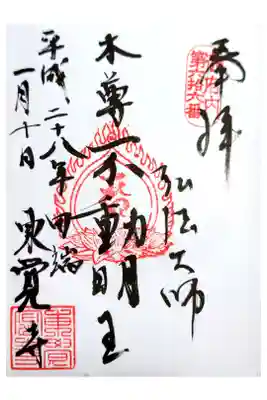 奉拝
第六拾六番
弘法大師
本尊不動明王
平成二十八年田端
一月十日
東覚寺